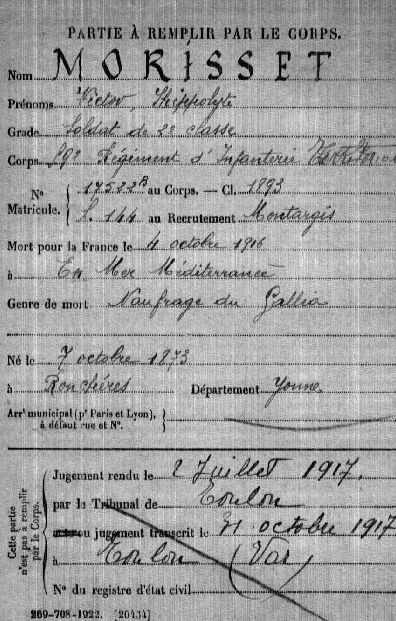 PARTIE À REMPLIR PAR LE CORPS.
Nom MORISSET
Prénoms Victor, Hippolyte
Grade Soldat de 2e classe
Corps 59e Régiment d'Infanterie Territorial
N° Matricule. { 17522B au Corps. — Cl. 1893
L. 144 au Recrutement Montargis
Mort pour la France le 4 octobre 1916
à En Mer Méditerranée
Genre de mort Naufrage du Gallia
Né le 7 octobre 1873
à Ronchères Département Yonne
Arrt municipal (pr Paris et Lyon), à défaut rue et N°. }
Cette partie n'est pas à remplir par le Corps. {
Jugement rendu le 2 Juillet 1917.
par le Tribunal de Toulon
ou jugement transcrit le 31 octobre 1917
à Toulon (Var)
N° du registre d'état civil
269-708-1922. [26434]